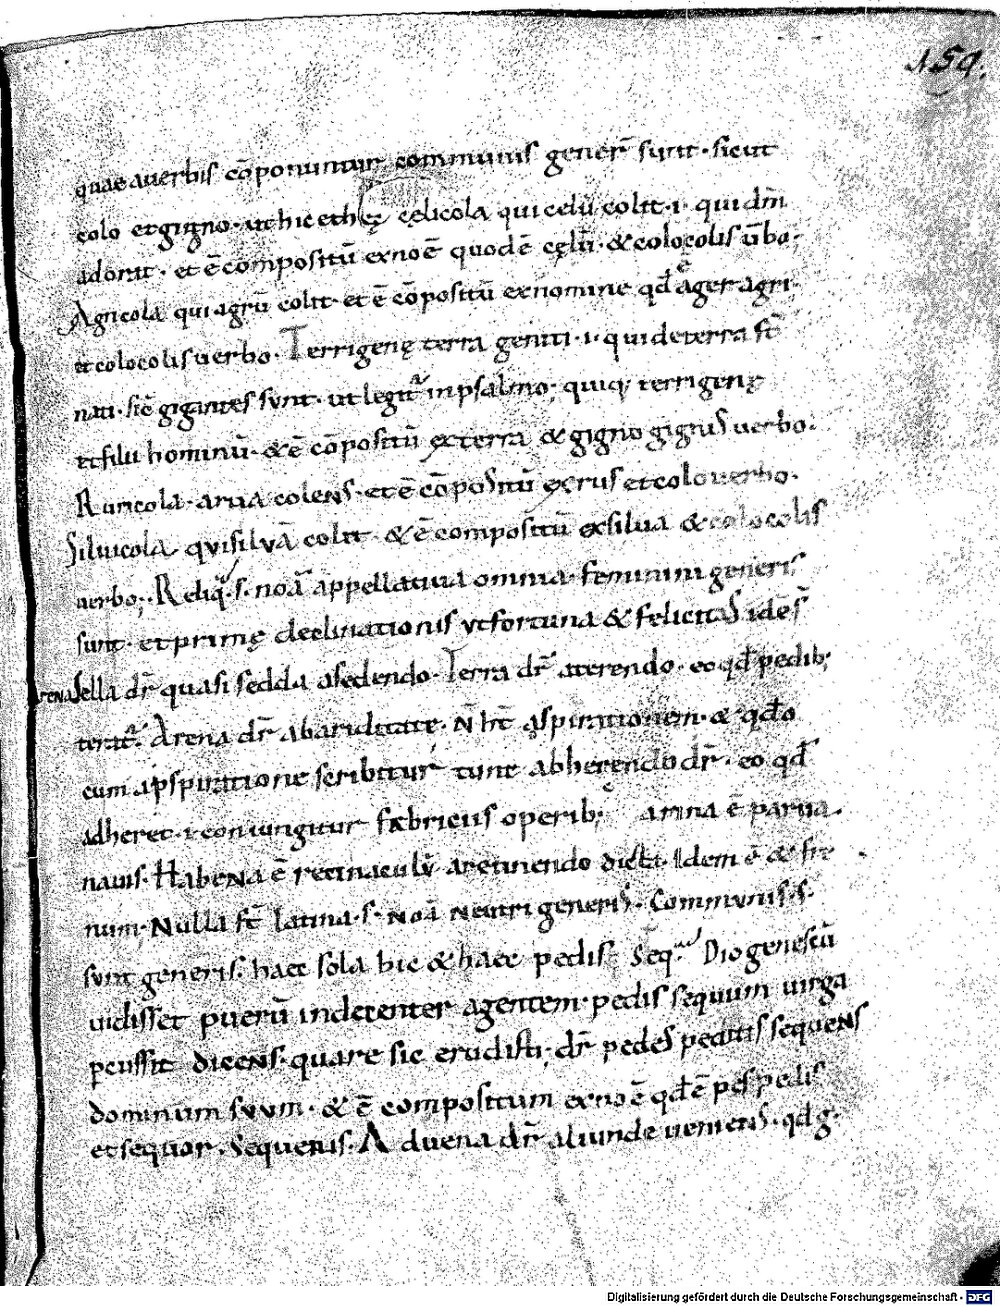 159.
quae auerbis cōponuntur communis gener̄ sunt · sicut
colo et gigno · ut hic et hęc cęlicola qui celū colit · i · qui dm̄
adorat · et ē compositū ex noē quod ē cęlū · & colo colis ūbo ·
Agricola qui agrū colit · et ē cōpositū ex nomine qđ ē ager agri ·
et colo colis uerbo · Terrigenę terra geniti · i · qui de terra st̄
nati · sic̄ gigantes sunt · ut legit᷑ in psalmo ; quiq; terrigenę
et filii hominū · & ē cōpositū ex terra & gigno gignis uerbo ·
Ruricola · arua colens · et ē cōpositū ex rus et colo uerbo ·
Siluicola qui siluā colit · & ē compositū ex silua & colo colis
uerbo ; · Reliq · s · noā appellatiua omnia · feminini generis
sunt · et primę declinationis ut fortuna & felicitas ides̄
renas Sella dr̄ quasi sedda a sedendo · Terra dr̄ a terendo · eo qđ pedib;
terat᷑ · Arena dr̄ ab ariditate · N̄ ht̄ aspirationem · & qđo
cum apspiratione scribitur tunc ab herendo dr̄ · eo qđ
adheret · i · coniungitur fabricius operib; arina ē parua ·
nauis · Habena ē retinaculū a retinendo dicta · Idem ē & fre
num · Nulla st̄ latina · s · noā neutri generis · Communis · s ·
sunt generis · haec sola hic & haec pedis Seq Diogenes cū
uidisset puerū indecenter agentem · pedis sequum uirga
peussit dicens · quare sic erudisti · dr̄ pedes peditis sequens
dominum suum · & ē compositum ex noē qđ ē pes pedis
et sequor · sequeris · Aduena dr̄ aliunde ueniens · qđ g ·
Digitalisierung gefördert durch die Deutsche Forschungsgemeinschaft - DFG